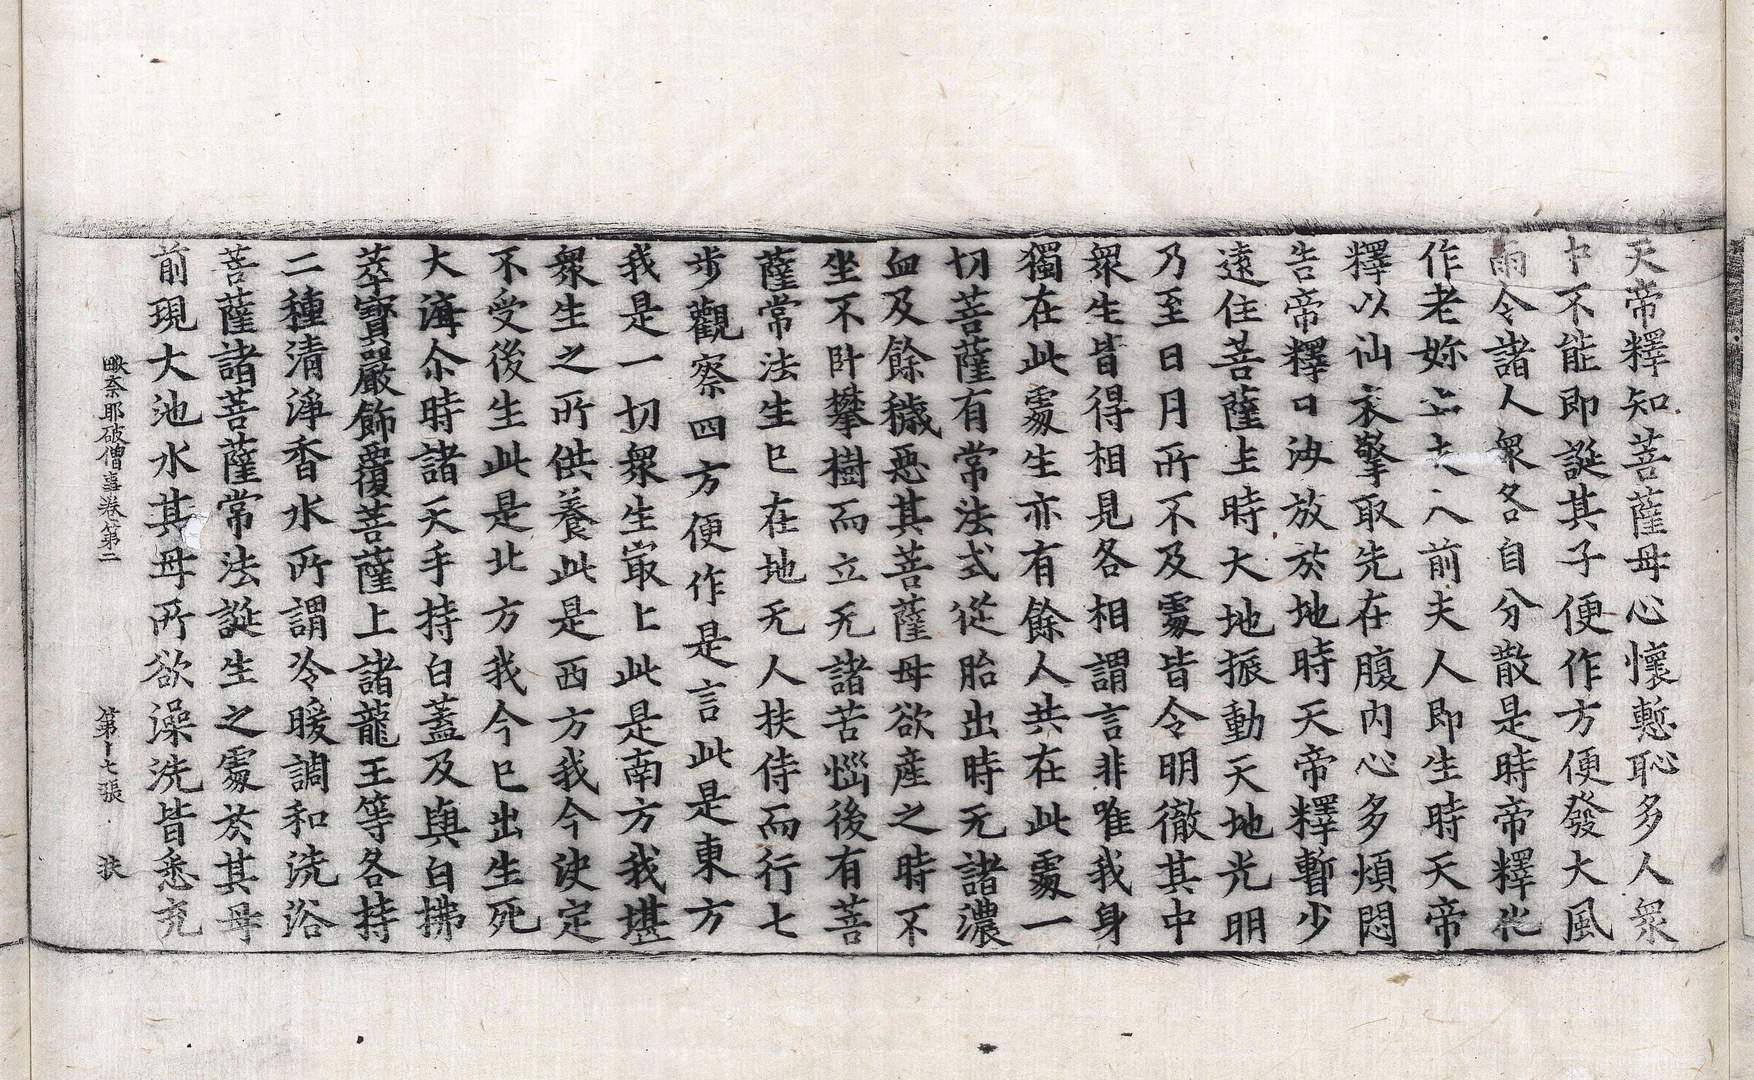 天帝釋知菩薩母心懷慙恥多人衆
中不能即誕其子便作方便發大風
雨令諸人衆各自分散是時帝釋化
作老 夫人前夫人即生時天帝
釋以仙衣擎取先在腹內心多煩悶
告帝釋曰汝放於地時天帝釋暫少
遠住菩薩生時大地振動天地光明
乃至日月所不及處皆令明徹其中
衆生皆得相見各相謂言非唯我身
獨在此處生亦有餘人共在此處一
切菩薩有常法式從胎出時无諸濃
血及餘穢惡其菩薩母欲産之時不
坐不卧攀樹而立无諸苦惱後有菩
薩常法生已在地无人扶侍而行七
步觀察四方便作是言此是東方
我是一切衆生㝡上此是南方我堪
衆生之所供養此是西方我今決定
不受後生此是北方我今已出生死
大海尒時諸天手持白蓋及與白拂
萃寶嚴飾覆菩薩上諸龍王等各持
二種清淨香水所謂冷暖調和洗浴
菩薩諸菩薩常法誕生之處於其母
前現大池水其母所欲澡洗皆悉充
毗奈耶破僧事卷第二 第十七張 扶